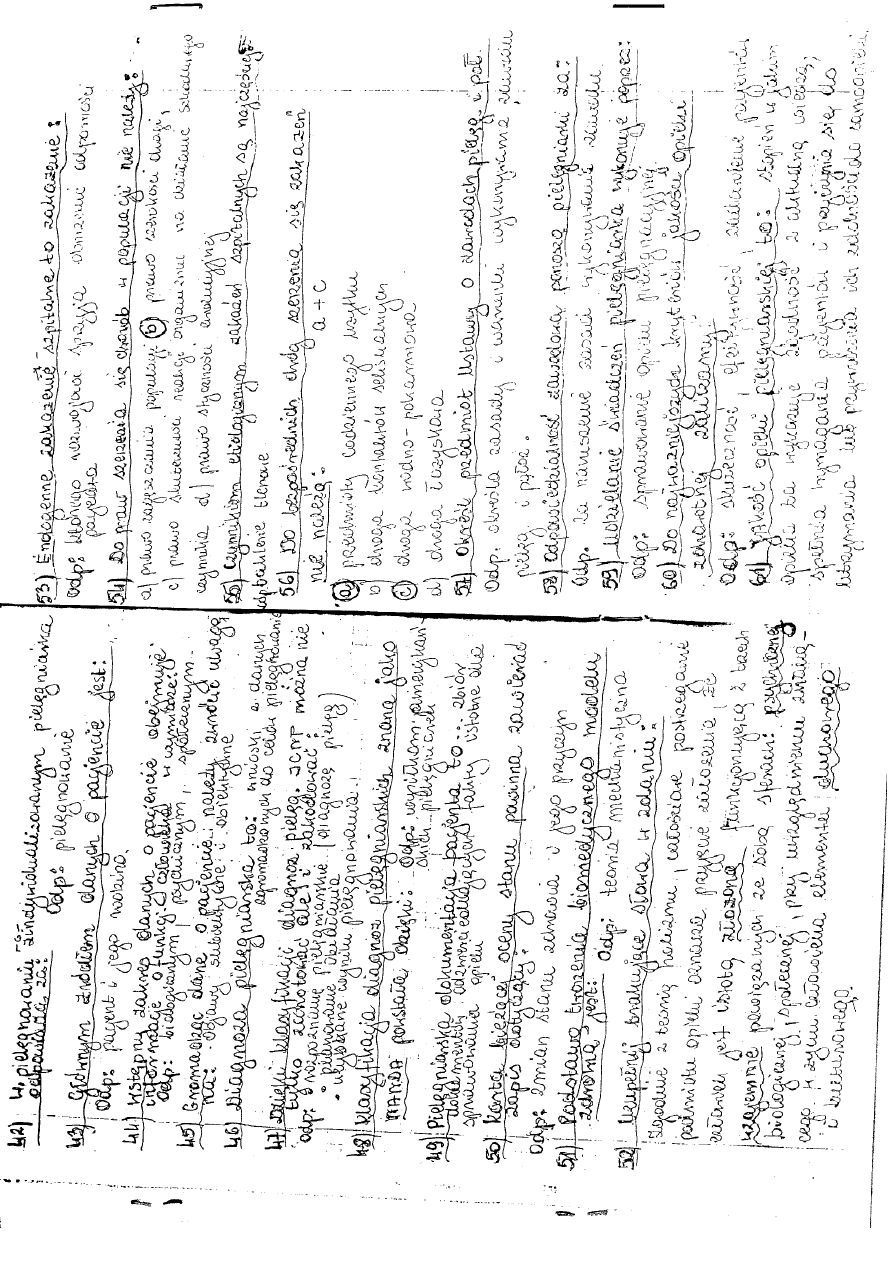 42) W pielęgnowaniu zindywidualizowanym pielęgniarka
odpowiada za: Odp: pielęgnowanie
43) Głównym źródłem danych o pacjencie jest:
Odp: pacjent i jego rodzina
44) Wstępny zakres danych o pacjencie obejmuje
informacje o funkcj. człowieka w wymiarze:
Odp: biologicznym, psychicznym, społecznym
45) Gromadząc dane o pacjencie należy zwrócić uwagę
na: objawy subiektywne i obiektywne
46) Diagnoza pielęgniarska to: wnioski z danych
zgromadzonych do celów pielęgnowania
47) Dzięki klasyfikacji diagnoz pielęg. ICNP można nie
tylko zanotować ale i zakodować:
Odp: • rozpoznanie pielęgniarskie (diagnozę pielęg)
• planowane działania
• uzyskane wyniki pielęgnowania
48) Klasyfikacja diagnoz pielęgniarskich znana jako
NANDA powstała dzięki: Odp: wysiłkom amerykań
skich pielęgniarek
49) Pielęgniarska dokumentacja pacjenta to ... zbiór
dokumentów, odzwierciedlających fakty istotne dla
sprawowania opieki
50) Karta bieżącej oceny stanu powinna zawierać
zapis dotyczący:
Odp: zmian stanu zdrowia i jego przyczyn
51) Podstawą tworzenia biomedycznego modelu
zdrowia jest: Odp: teoria mechanistyczna
52) Uzupełnij brakujące słowa w zdaniu:
Zgodnie z teorią holizmu, całościowe postrzeganie
podmiotu opieki oznacza przyjęcie założenia, że
człowiek jest istotą złożoną, funkcjonującą z trzech
wzajemnie powiązanych ze sobą sferach: psychicznej
biologicznej i społecznej, przy uwzględnieniu znaczą-
cego w życiu człowieka elementu duchowego
i kulturowego
53) Endogenne zakażenie szpitalne to zakażenie:
Odp: którego rozwojowi sprzyja obniżenie odporności
pacjenta
54) Do praw szerzenia się chorób w populacji nie należy:
a) prawo zagęszczenia populacji b) prawo szerokości drogi,
c) prawo skutecznej reakcji organizmu na działanie szkodliwego
czynnika d) prawo styczności ewolucyjnej
55) Czynnikiem etiologicznym zakażeń szpitalnych są najczęściej:
odp. pałeczki tlenowe
56) Do bezpośrednich dróg szerzenia się zakażeń
nie należą: a + c
a) przedmioty codziennego użytku
b) droga kontaktów seksualnych
c) droga wodno-pokarmowa
d) droga łożyskowa
57) Określ przedmiot Ustawy o zawodach pielęg. i poł.
Odp. określa zasady i warunki wykonywania zawodu
pielęg i położ.
58) Odpowiedzialność zawodową ponoszą pielęgniarki za:
Odp. za naruszenie zasad wykonywania zawodu
59) Udzielanie świadczeń pielęgniarka wykonuje poprzez:
Odp: sprawowanie opieki pielęgnacyjnej
60) Do najważniejszych kryteriów jakości opieki
zdrowotnej zaliczamy:
Odp: skuteczność, efektywność, zadowolenie pacjentów
61) Jakość opieki pielęgniarskiej to: stopień w jakim
opieka ta wykazuje zgodność z aktualną wiedzą,
spełnia wymagania pacjentów i przyczynia się do
utrzymania lub przywracania ich zdolności do samoopieki